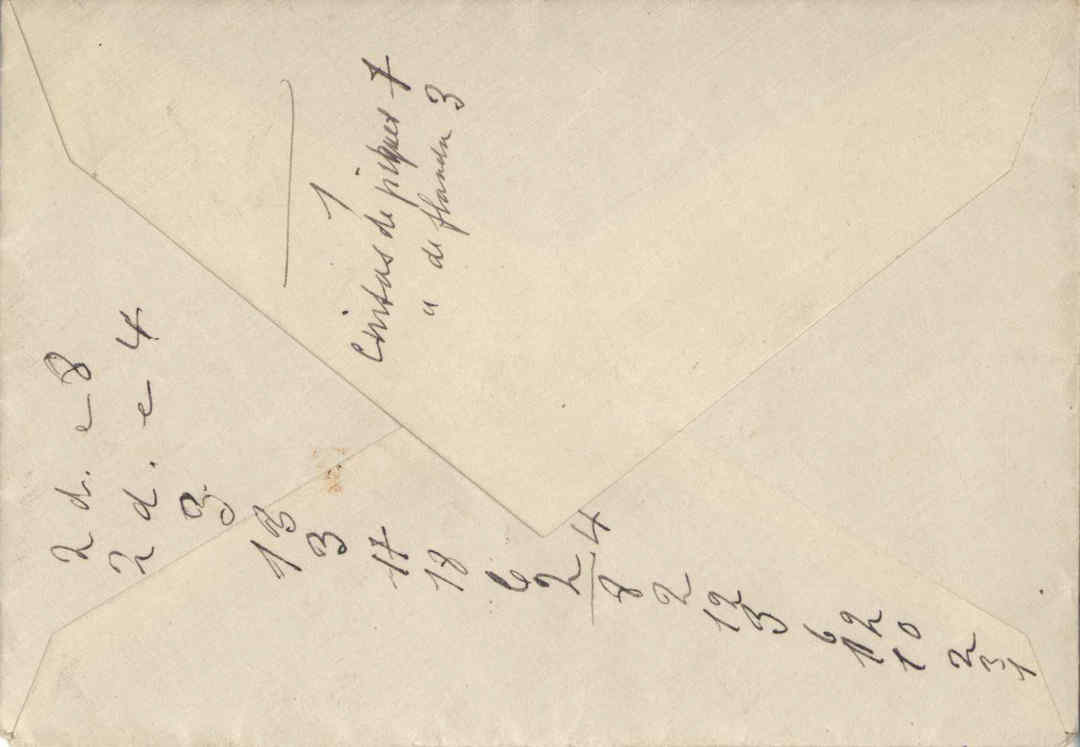 Cintas de piques 7
" de flanela 3
2 d. e 8
2 d. e 4
3
13
3
17
18
6
2 4
8
2
12
3
6
12
10
2
3
1